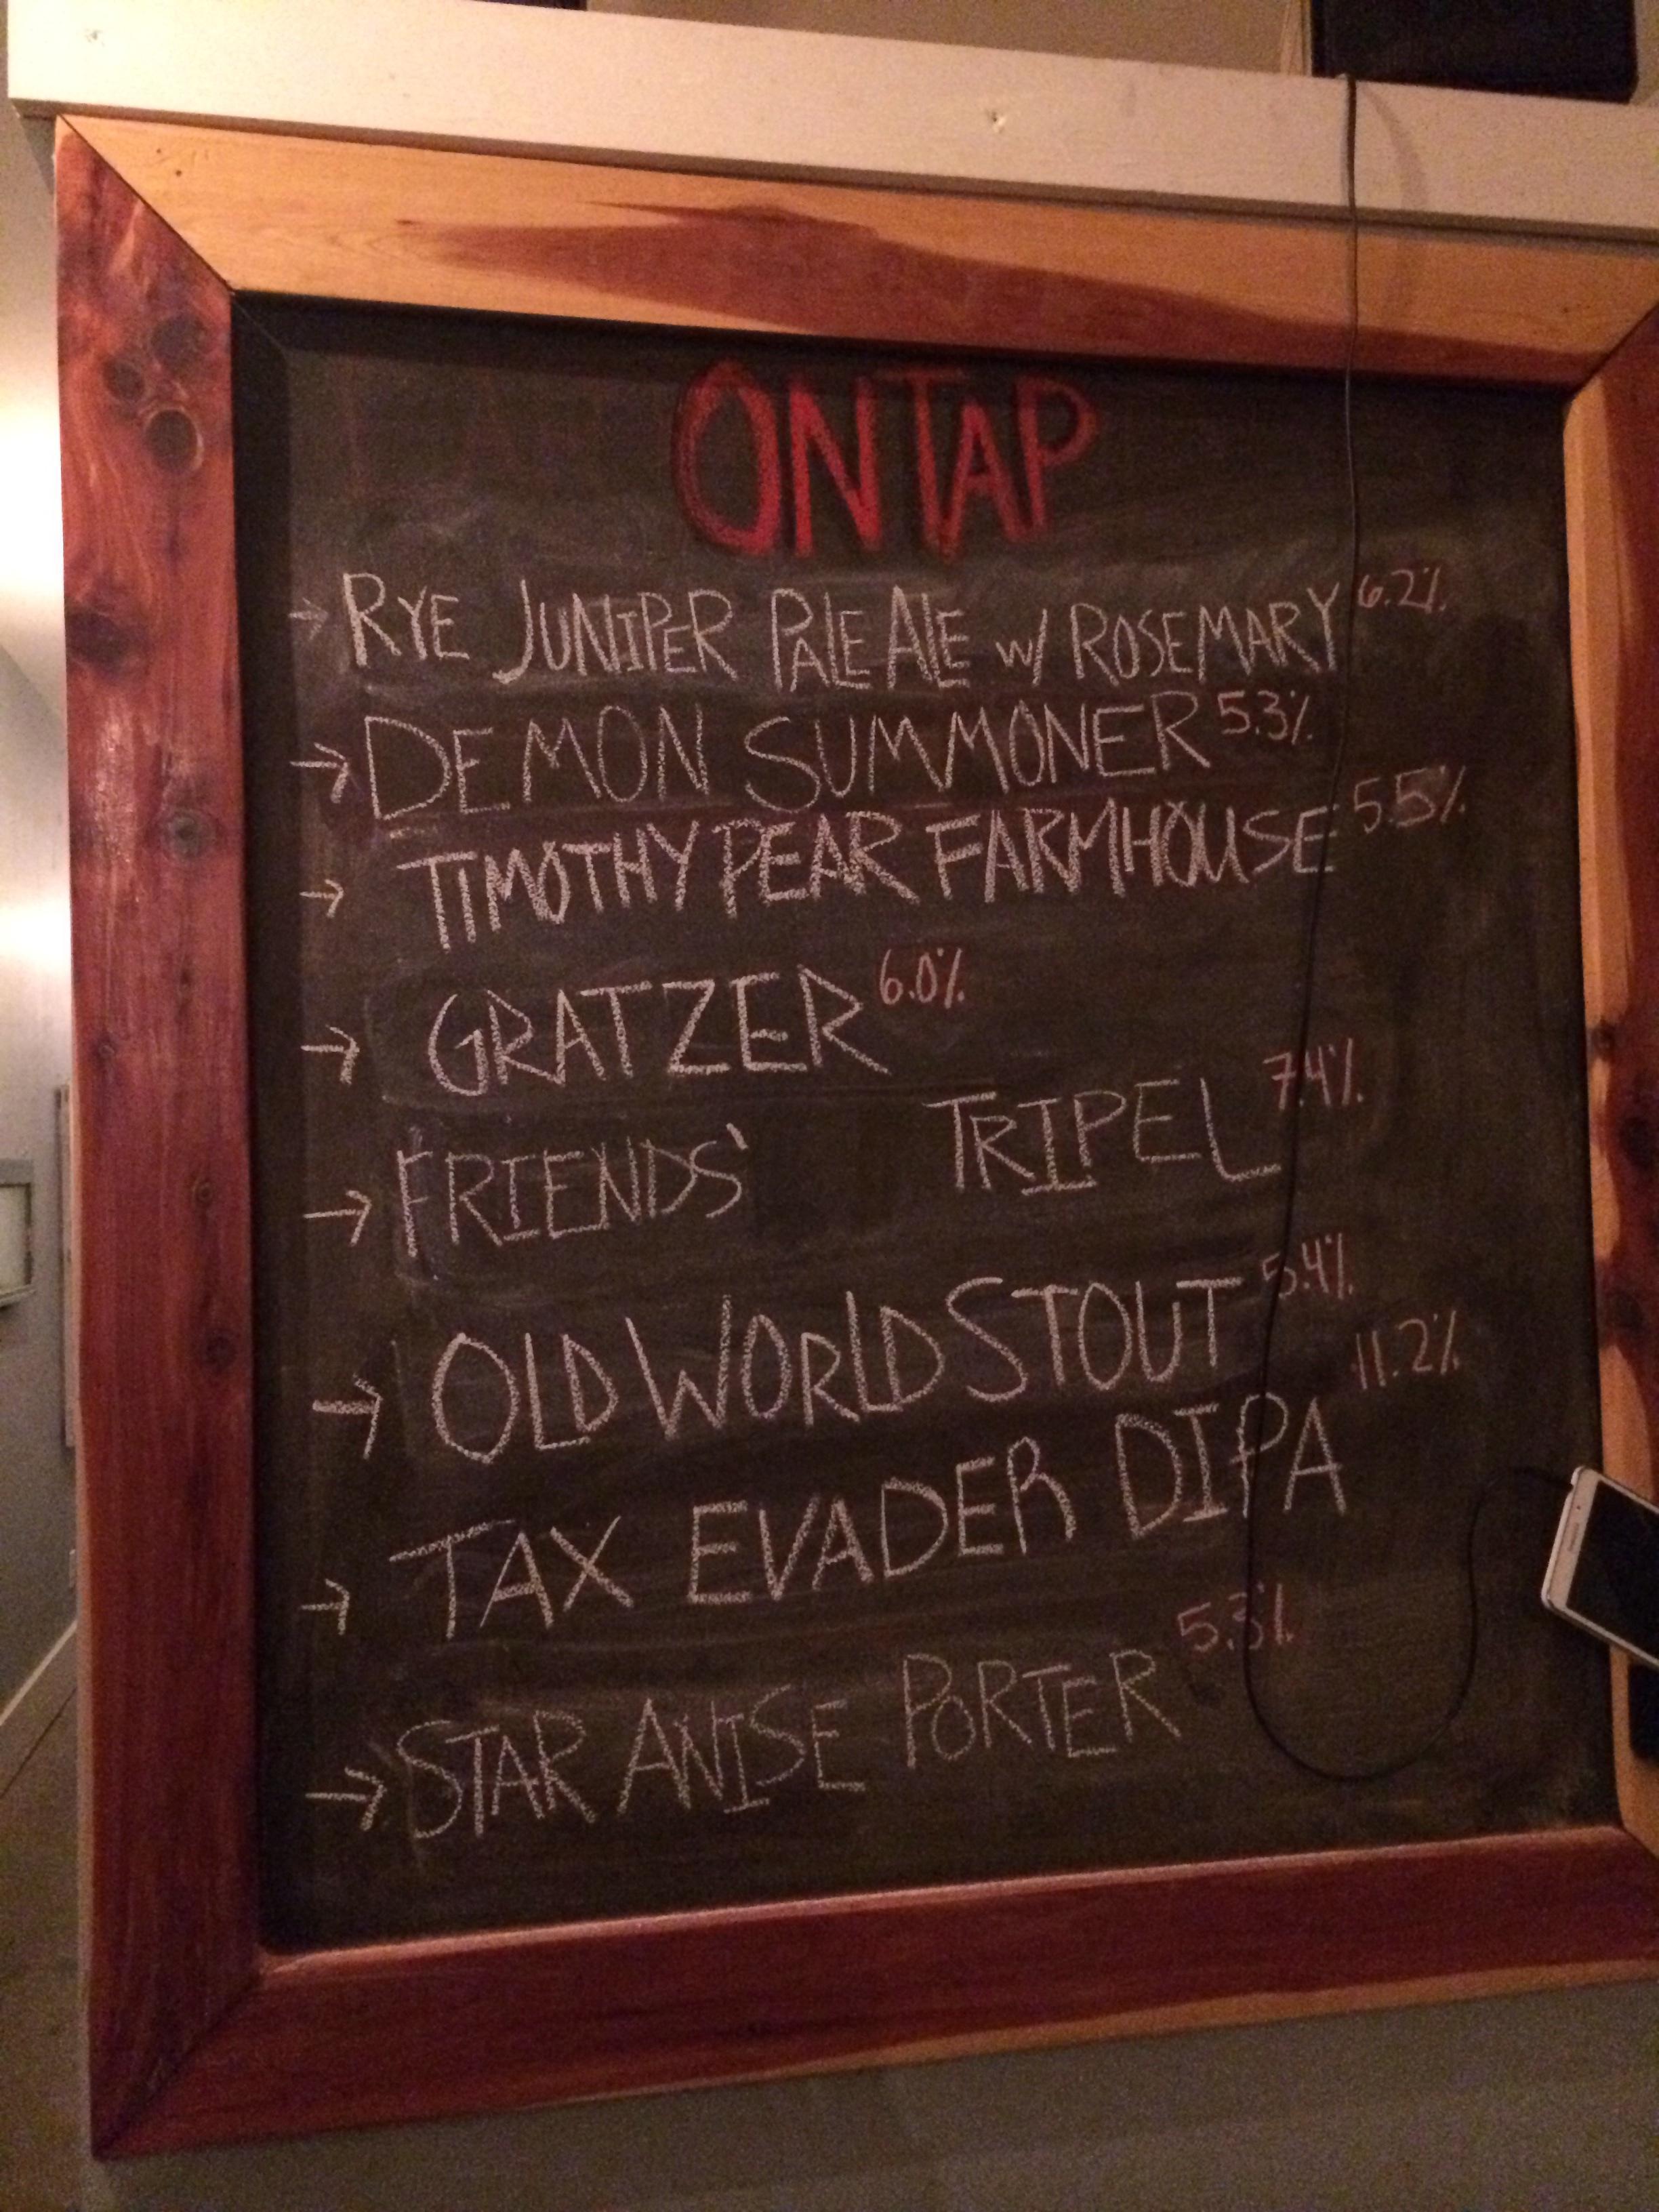 ON TAP
→ RYE JUNIPER PALE ALE W/ ROSEMARY 6.2%
→ DEMON SUMMONER 5.3%
→ TIMOTHY PEAR FARMHOUSE 5.5%
→ GRATZER 6.0%
→ FRIENDS' TRIPEL 7.4%
→ OLD WORLD STOUT 5.4%
→ TAX EVADER DIPA 11.2%
→ STAR ANISE PORTER 5.3%